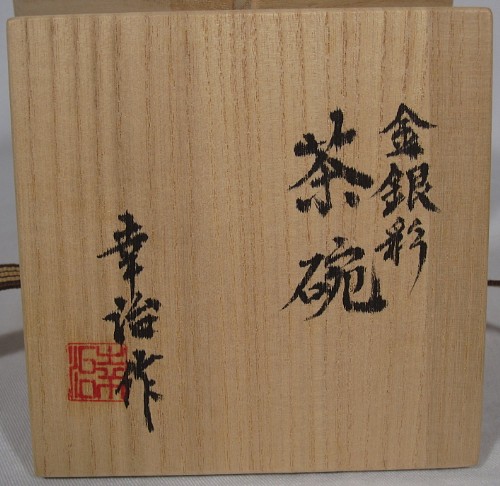 金銀彩
茶碗
幸治作
幸治